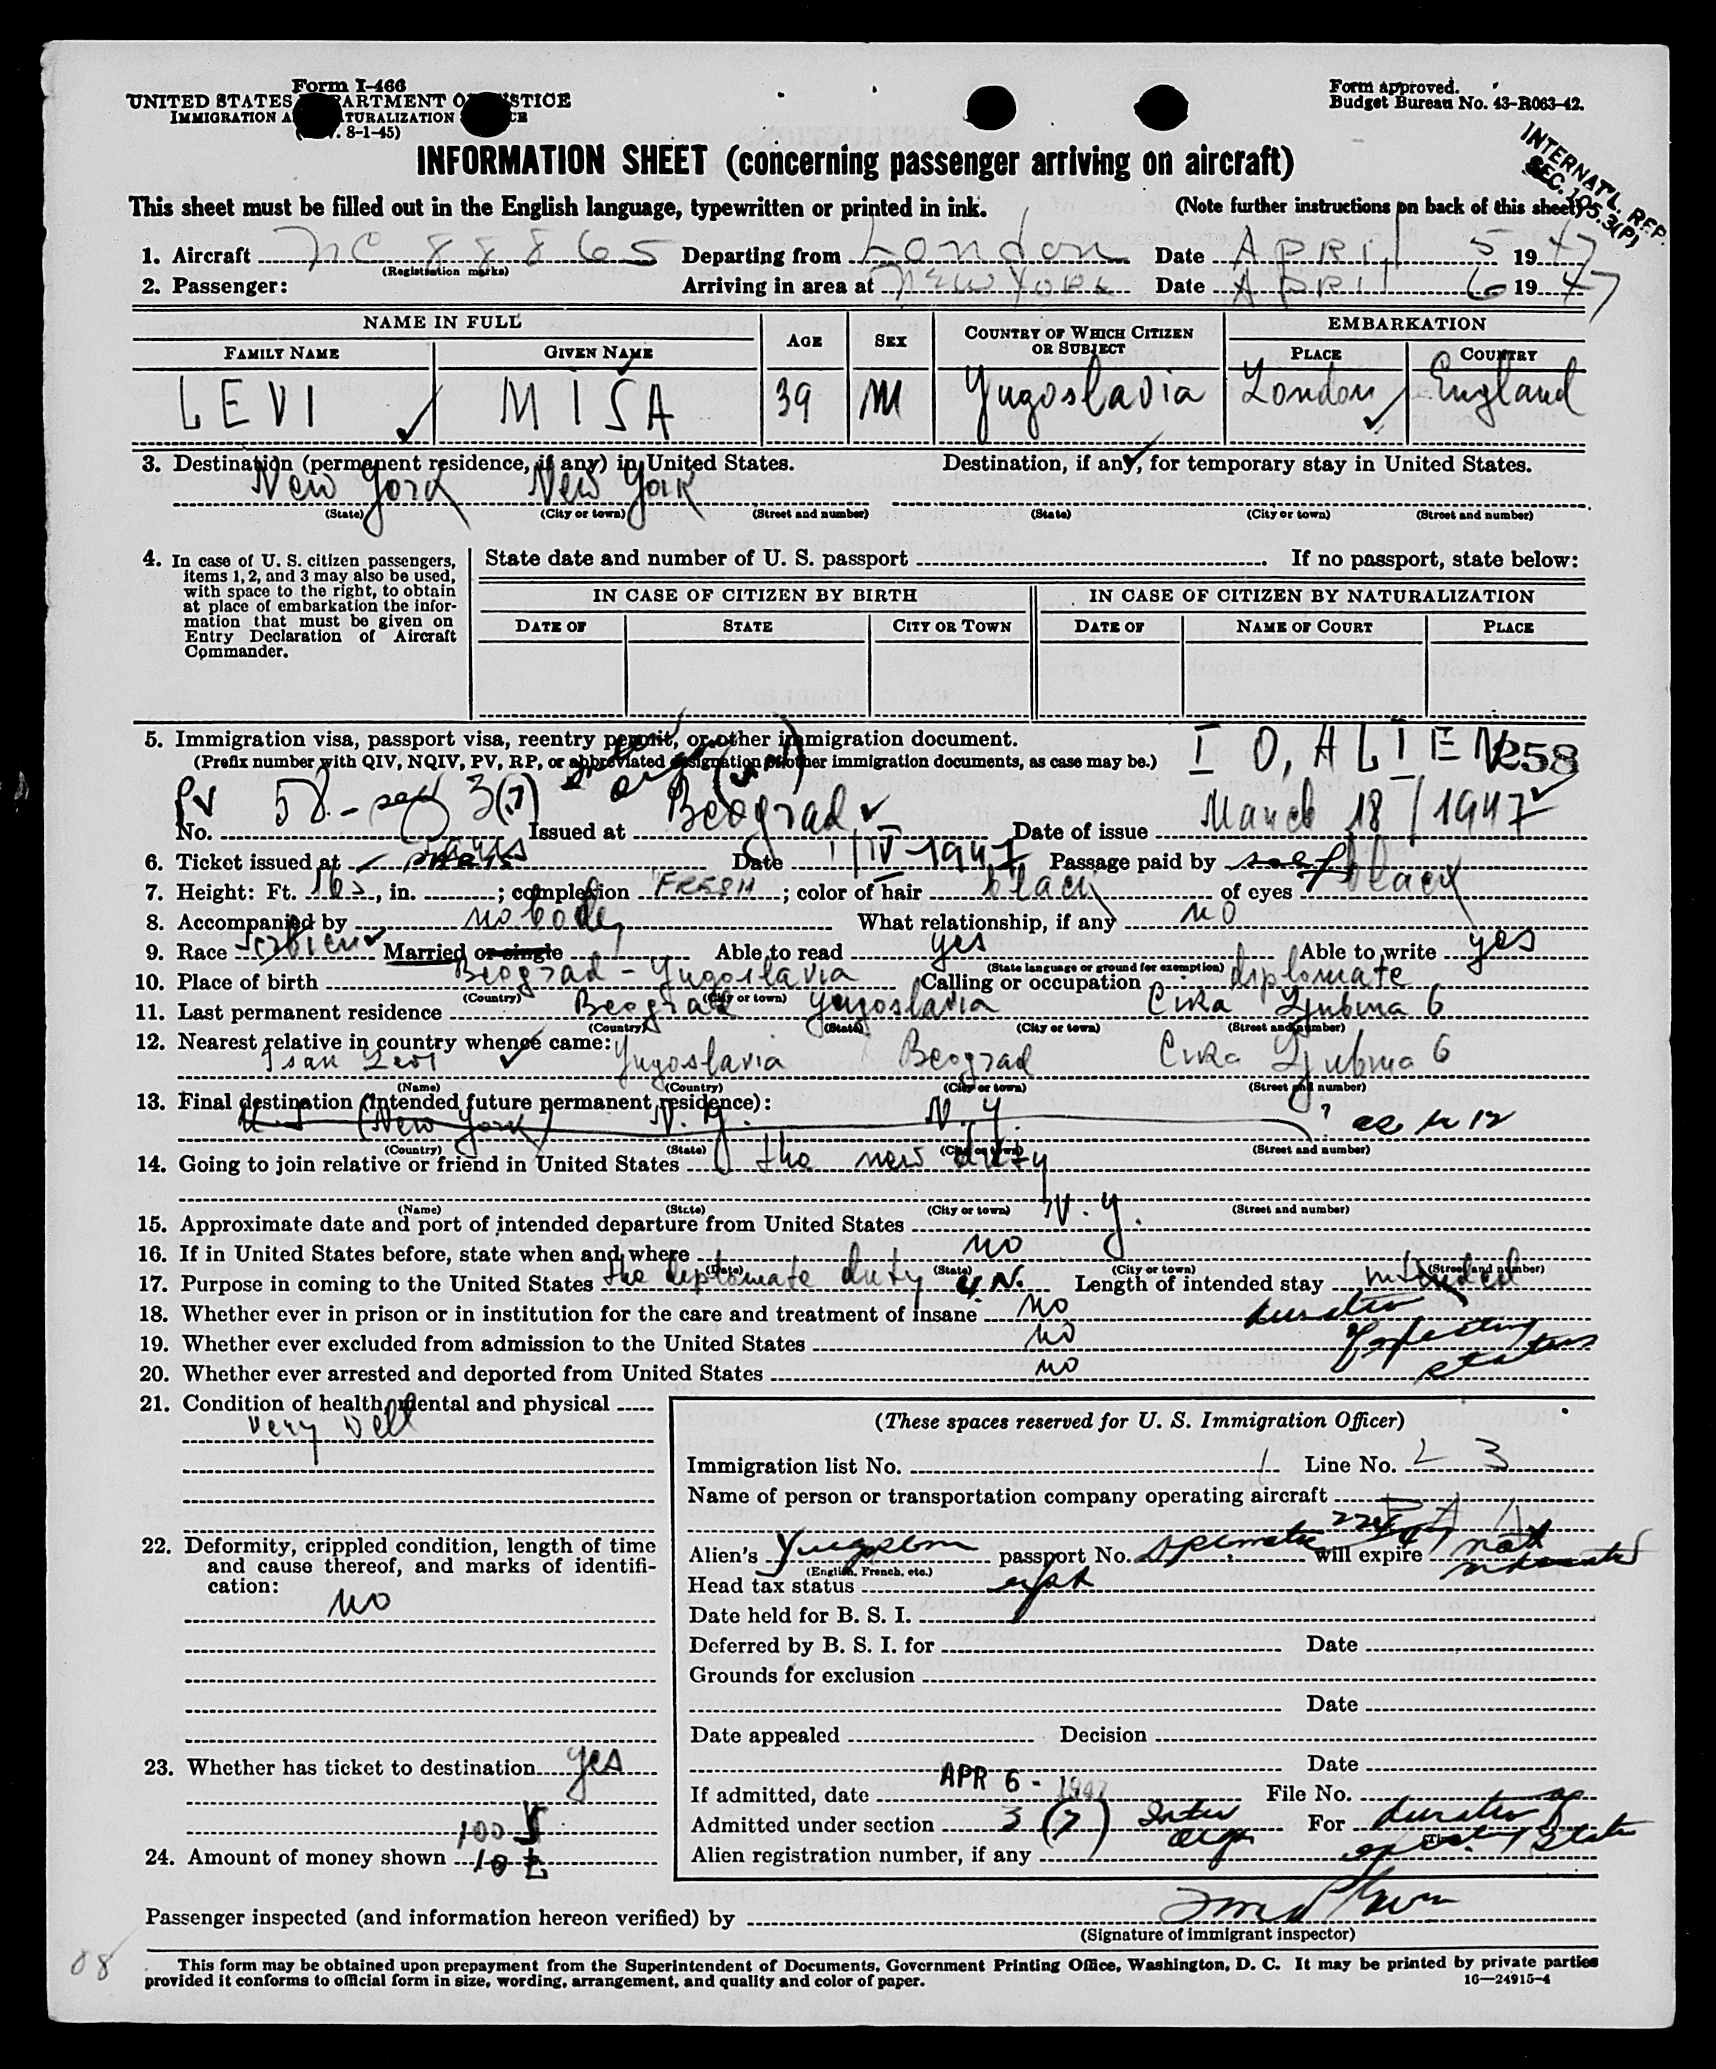 Form I-466
UNITED STATES DEPARTMENT OF JUSTICE
IMMIGRATION AND NATURALIZATION SERVICE
(REV. 8-1-45)
Form approved.
Budget Bureau No. 43-R063-42.
INTERNAT'L. REP.
SEC. 105.3(P)
INFORMATION SHEET (concerning passenger arriving on aircraft)
This sheet must be filled out in the English language, typewritten or printed in ink. (Note further instructions on back of this sheet)
1. Aircraft NC 88865 Departing from London Date April 5 1947
(Registration marks)
2. Passenger: Arriving in area at New York Date April 6 1947
NAME IN FULL
FAMILY NAME GIVEN NAME AGE SEX COUNTRY OF WHICH CITIZEN OR SUBJECT EMBARKATION
PLACE COUNTRY
LEVI MISA 39 M Yugoslavia London England
3. Destination (permanent residence, if any) in United States. Destination, if any, for temporary stay in United States.
New York New York
(State) (City or town) (Street and number) (State) (City or town) (Street and number)
4. In case of U. S. citizen passengers, items 1, 2, and 3 may also be used, with space to the right, to obtain at place of embarkation the information that must be given on Entry Declaration of Aircraft Commander.
State date and number of U. S. passport . If no passport, state below:
IN CASE OF CITIZEN BY BIRTH IN CASE OF CITIZEN BY NATURALIZATION
DATE OF STATE CITY OR TOWN DATE OF NAME OF COURT PLACE
5. Immigration visa, passport visa, reentry permit, or other immigration document. I O, ALIEN 258
(Prefix number with QIV, NQIV, PV, RP, or abbreviated designation of other immigration documents, as case may be.)
No. PV 58 - 3(7) Issued at Beograd Date of issue March 18/1947
6. Ticket issued at Paris Date 1/IV-1947 Passage paid by self
7. Height: Ft. 163, in. ; complexion FRESH; color of hair black of eyes black
8. Accompanied by nobody What relationship, if any no
9. Race Serbien Married or single Able to read yes Able to write yes
(State language or ground for exemption)
10. Place of birth Beograd - Yugoslavia Calling or occupation diplomate
(Country) (City or town)
11. Last permanent residence Beograd Yugoslavia Cika Ljubina 6
(Country) (State) (City or town) (Street and number)
12. Nearest relative in country whence came:
Isak Levi Yugoslavia Beograd Cika Ljubina 6
(Name) (Country) (City or town) (Street and number)
13. Final destination (Intended future permanent residence):
U.S (New York) N.Y. N.Y. ? as in 12
(Country) (State) (City or town) (Street and number)
14. Going to join relative or friend in United States the new duty
(Name) (State) (City or town) (Street and number)
15. Approximate date and port of intended departure from United States N.Y.
16. If in United States before, state when and where no
(Date) (State) (City or town) (Street and number)
17. Purpose in coming to the United States the diplomate duty U.N. Length of intended stay
18. Whether ever in prison or in institution for the care and treatment of insane no
19. Whether ever excluded from admission to the United States no
20. Whether ever arrested and deported from United States no
duration of status
21. Condition of health, mental and physical
very well
22. Deformity, crippled condition, length of time and cause thereof, and marks of identification:
no
23. Whether has ticket to destination yes
100 $
24. Amount of money shown 10 £
(These spaces reserved for U. S. Immigration Officer)
Immigration list No. 1 Line No. L 3
Name of person or transportation company operating aircraft P A A
Alien's passport No. will expire not
(English, French, etc.)
Head tax status
Date held for B. S. I.
Deferred by B. S. I. for Date
Grounds for exclusion
Date
Date appealed Decision
Date
If admitted, date APR 6 - 1947 File No.
Admitted under section 3 (7) For duration of
Alien registration number, if any
Passenger inspected (and information hereon verified) by
(Signature of immigrant inspector)
This form may be obtained upon prepayment from the Superintendent of Documents, Government Printing Office, Washington, D. C. It may be printed by private parties
provided it conforms to official form in size, wording, arrangement, and quality and color of paper. 16—24915-4
08